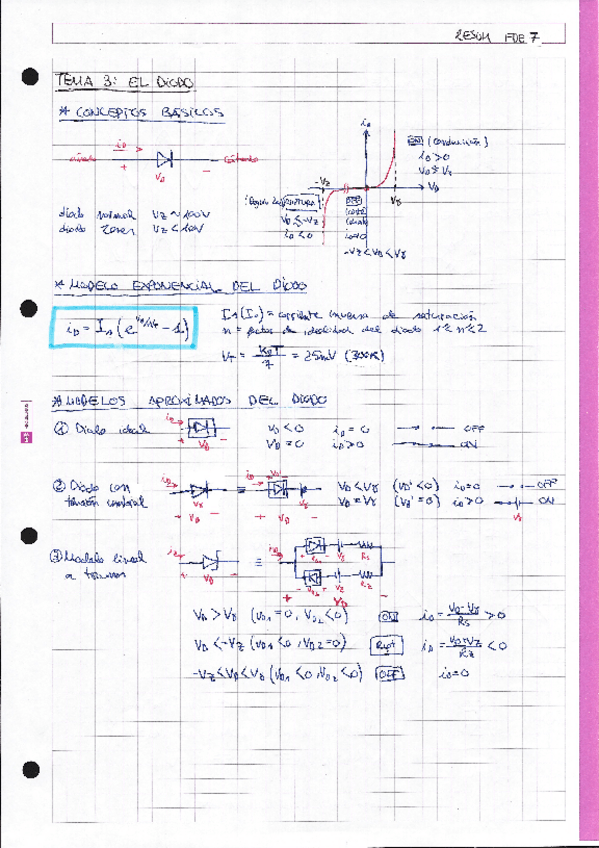 RESUM FDE 7
TEMA 3: EL DIODO
* CONCEPTOS BÁSICOS
ánodo iD + VD - cátodo
iD
ON (conducción)
iD > 0
VD ≈ Vγ
-VZ
VD
Vγ
Región de RUPTURA
VD ≤ -VZ
iD < 0
OFF
iD = 0
-VZ < VD < Vγ
diodo normal VZ ~ 100V
diodo zener VZ < 10V
* MODELO EXPONENCIAL DEL DIODO
iD = Is (e^(VD/nVT) - 1)
Is (Io) = corriente inversa de saturación
n = factor de idealidad del diodo 1 ≤ n ≤ 2
VT = KBT / q = 25mV (300K)
* MODELOS APROXIMADOS DEL DIODO
① Diodo ideal iD + VD - VD < 0 iD = 0 OFF
VD = 0 iD > 0 ON
② Diodo con iD Vγ ≡ iD VD' VD < Vγ (VD' < 0) iD = 0 OFF
tensión umbral + VD - + VD - VD = Vγ (VD' = 0) iD > 0 ON
Vγ
③ Modelo lineal iD + VD - ≡ iD VD1 Vγ Rs
a tramos VD2 VZ RZ
+ VD -
VD > Vγ (VD1 = 0, VD2 < 0) ON iD = VD - Vγ / Rs > 0
VD < -VZ (VD1 < 0, VD2 = 0) Rupt iD = VD + VZ / RZ < 0
-VZ < VD < Vγ (VD1 < 0, VD2 < 0) OFF iD = 0